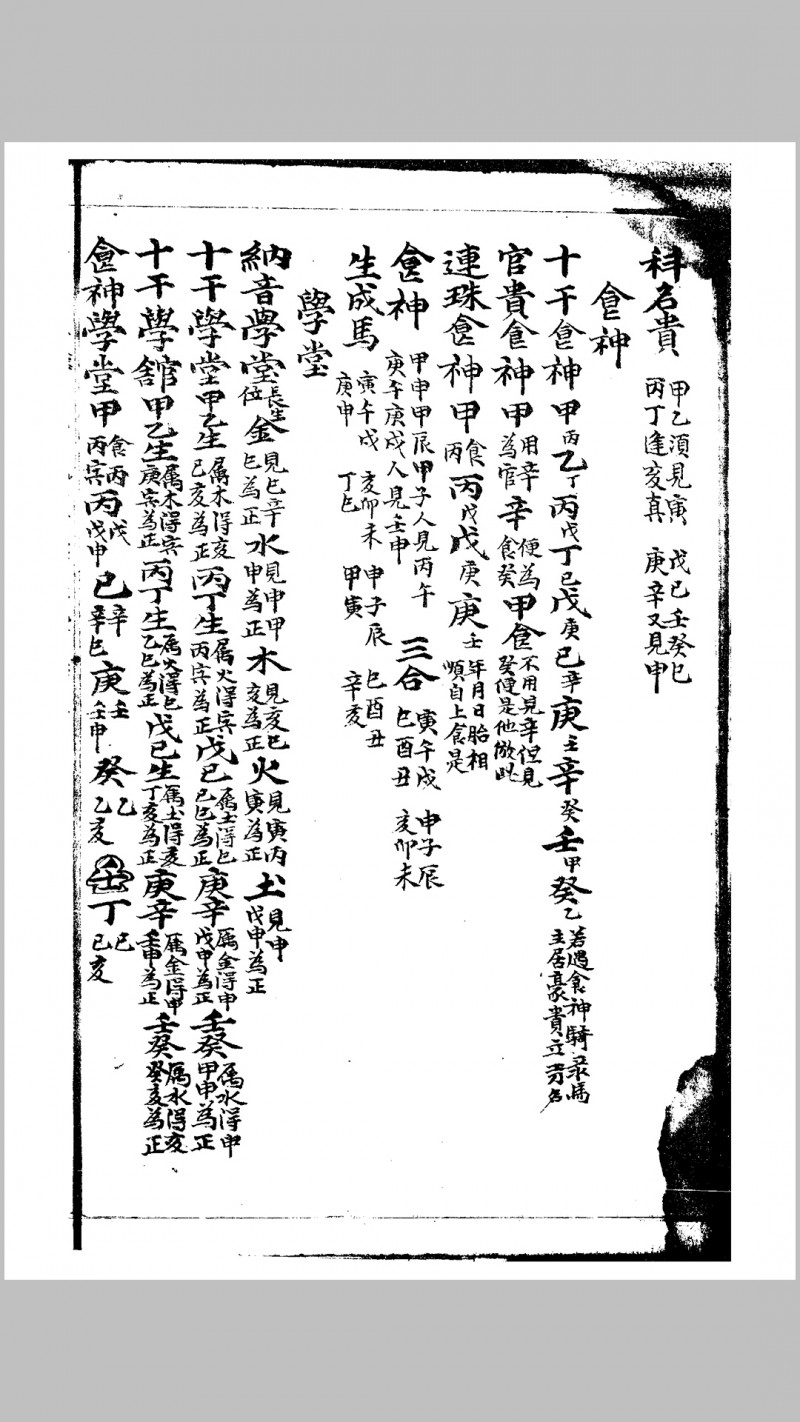 科名貴 甲乙須見寅 戊己壬癸巳 丙丁逢亥真 庚辛又見申
食神
十干食神甲丙乙丁丙戊丁己戊庚己辛庚壬辛癸壬甲癸乙 若遇食神騎彔馬 主居豪貴立芳名
官貴食神甲 用辛為官 辛 便為食癸 甲食 不用見辛但見癸便是他倣此
連珠食神甲 食丙 丙戊戊庚庚壬 年月日胎相順自上食是
食神 甲申甲辰甲子人見丙午 庚午庚戌人見壬申 三合 寅午戌 申子辰 巳酉丑 亥卯未
生成馬 寅午戌 庚申 亥卯未 丁巳 申子辰 甲寅 巳酉丑 辛亥
學堂
納音學堂 長生位 金 見巳辛巳為正 水 見申甲申為正 木 見亥己亥為正 火 見寅丙寅為正 土 見申戊申為正
十干學堂甲乙生 属木得亥己亥為正 丙丁生 属火得寅丙寅為正 戊己 属土得巳己巳為正 庚辛 属金得申戊申為正 壬癸 属水得申甲申為正
十干學舘甲乙生 属木得寅庚寅為正 丙丁生 属火得巳乙巳為正 戊己生 属土得亥丁亥為正 庚辛 属金得申壬申為正 壬癸 属水得亥癸亥為正
食神學堂甲 食丙丙寅 丙 戊戊申 己 辛辛巳 庚 壬壬申 癸 乙乙亥 壬 丁 己己亥